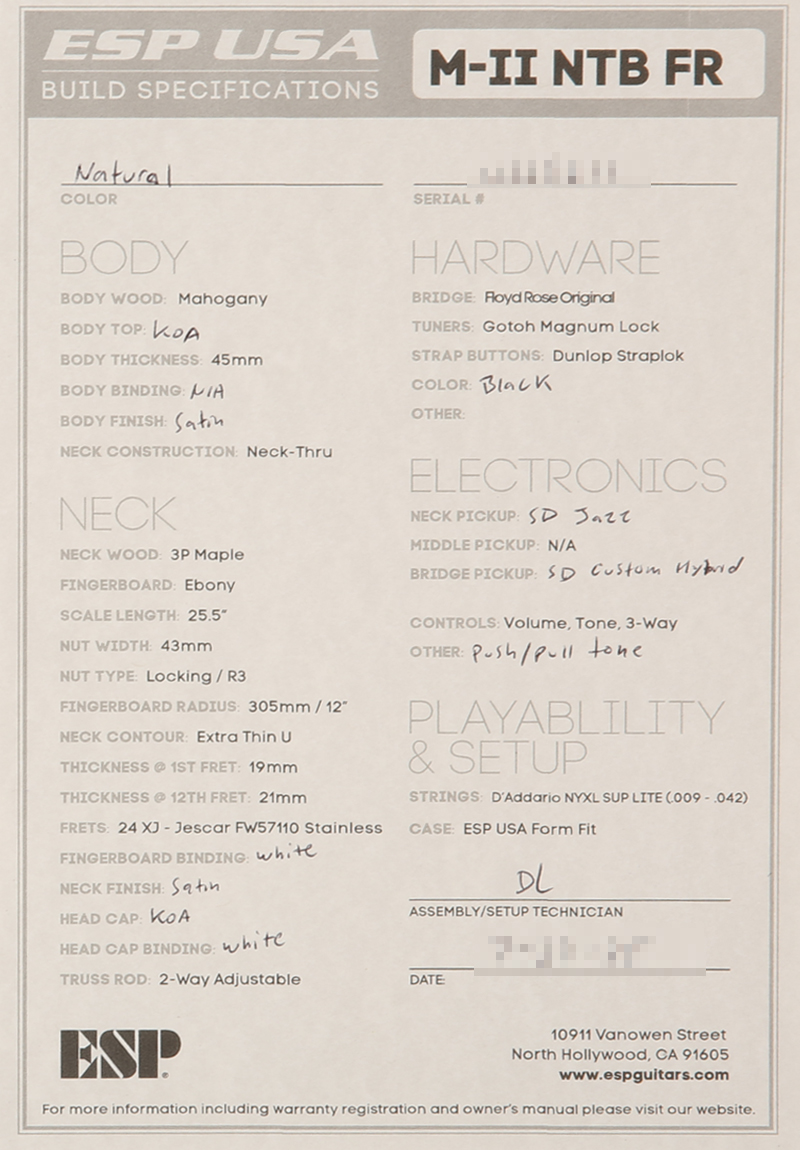 ESP USA
BUILD SPECIFICATIONS
M-II NTB FR
Natural
COLOR
SERIAL #
BODY
BODY WOOD: Mahogany
BODY TOP: KOA
BODY THICKNESS: 45mm
BODY BINDING: N/A
BODY FINISH: Satin
NECK CONSTRUCTION: Neck-Thru
NECK
NECK WOOD: 3P Maple
FINGERBOARD: Ebony
SCALE LENGTH: 25.5"
NUT WIDTH: 43mm
NUT TYPE: Locking / R3
FINGERBOARD RADIUS: 305mm / 12"
NECK CONTOUR: Extra Thin U
THICKNESS @ 1ST FRET: 19mm
THICKNESS @ 12TH FRET: 21mm
FRETS: 24 XJ - Jescar FW57110 Stainless
FINGERBOARD BINDING: white
NECK FINISH: Satin
HEAD CAP: KOA
HEAD CAP BINDING: white
TRUSS ROD: 2-Way Adjustable
HARDWARE
BRIDGE: Floyd Rose Original
TUNERS: Gotoh Magnum Lock
STRAP BUTTONS: Dunlop Straplok
COLOR: Black
OTHER:
ELECTRONICS
NECK PICKUP: SD Jazz
MIDDLE PICKUP: N/A
BRIDGE PICKUP: SD Custom Hybrid
CONTROLS: Volume, Tone, 3-Way
OTHER: push/pull tone
PLAYABLILITY
& SETUP
STRINGS: D'Addario NYXL SUP LITE (.009 - .042)
CASE: ESP USA Form Fit
DL
ASSEMBLY/SETUP TECHNICIAN
DATE:
ESP
10911 Vanowen Street
North Hollywood, CA 91605
www.espguitars.com
For more information including warranty registration and owner's manual please visit our website.